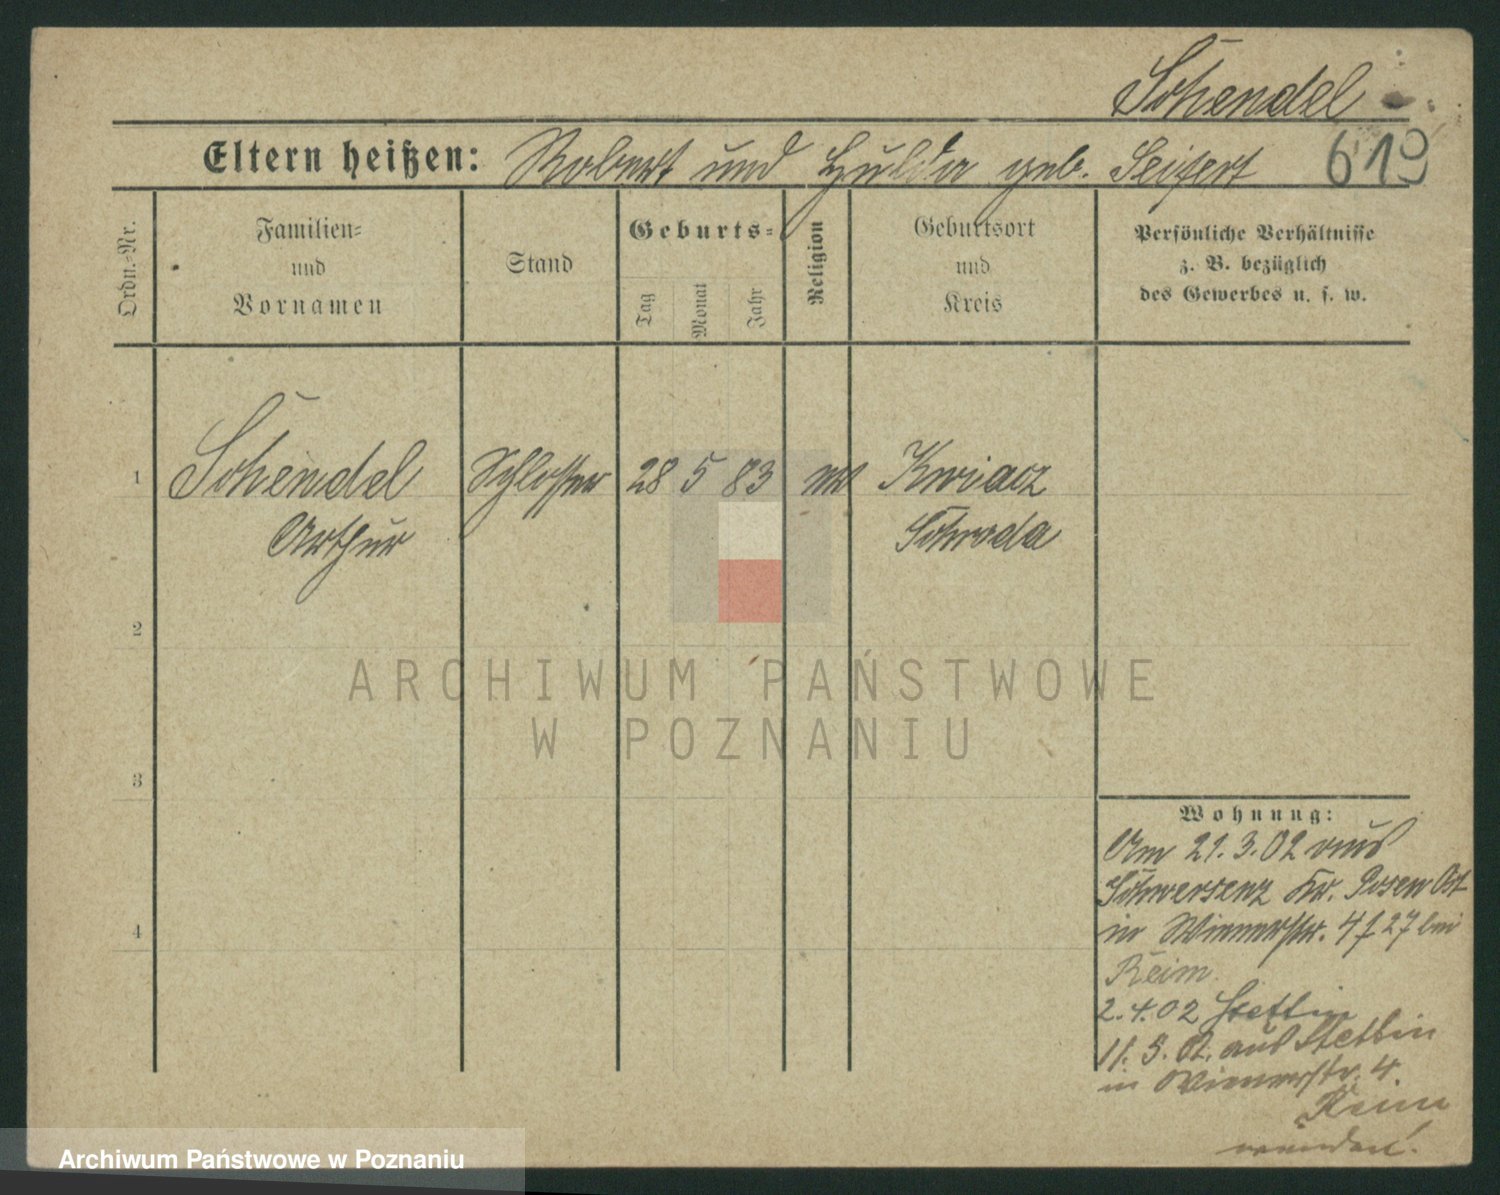 Schendel
Eltern heißen: Robert und Hulda geb. Seifert 619
Ordn.-Nr.
Familien-
und
Vornamen
Stand
Geburts-
Tag
Monat
Jahr
Religion
Geburtsort
und
Kreis
Persönliche Verhältnisse
z. B. bezüglich
des Gewerbes u. s. w.
1 Schendel Schlosser 28 5 83 Kwiacz
Arthur Schroda
2
ARCHIWUM PAŃSTWOWE
W POZNANIU
3
Wohnung:
Am 21.3.02 aus
Schwersenz Kr. Posen Ost
in Wienerstr. 4 f 27 bei
Reim
2.4.02 Stettin
11. 5. 02. aus Stettin
in Wienerstr. 4.
Reim
4
Archiwum Państwowe w Poznaniu